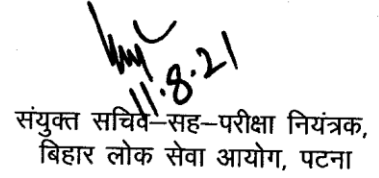 11.8.21
संयुक्त सचिव–सह–परीक्षा नियंत्रक,
बिहार लोक सेवा आयोग, पटना